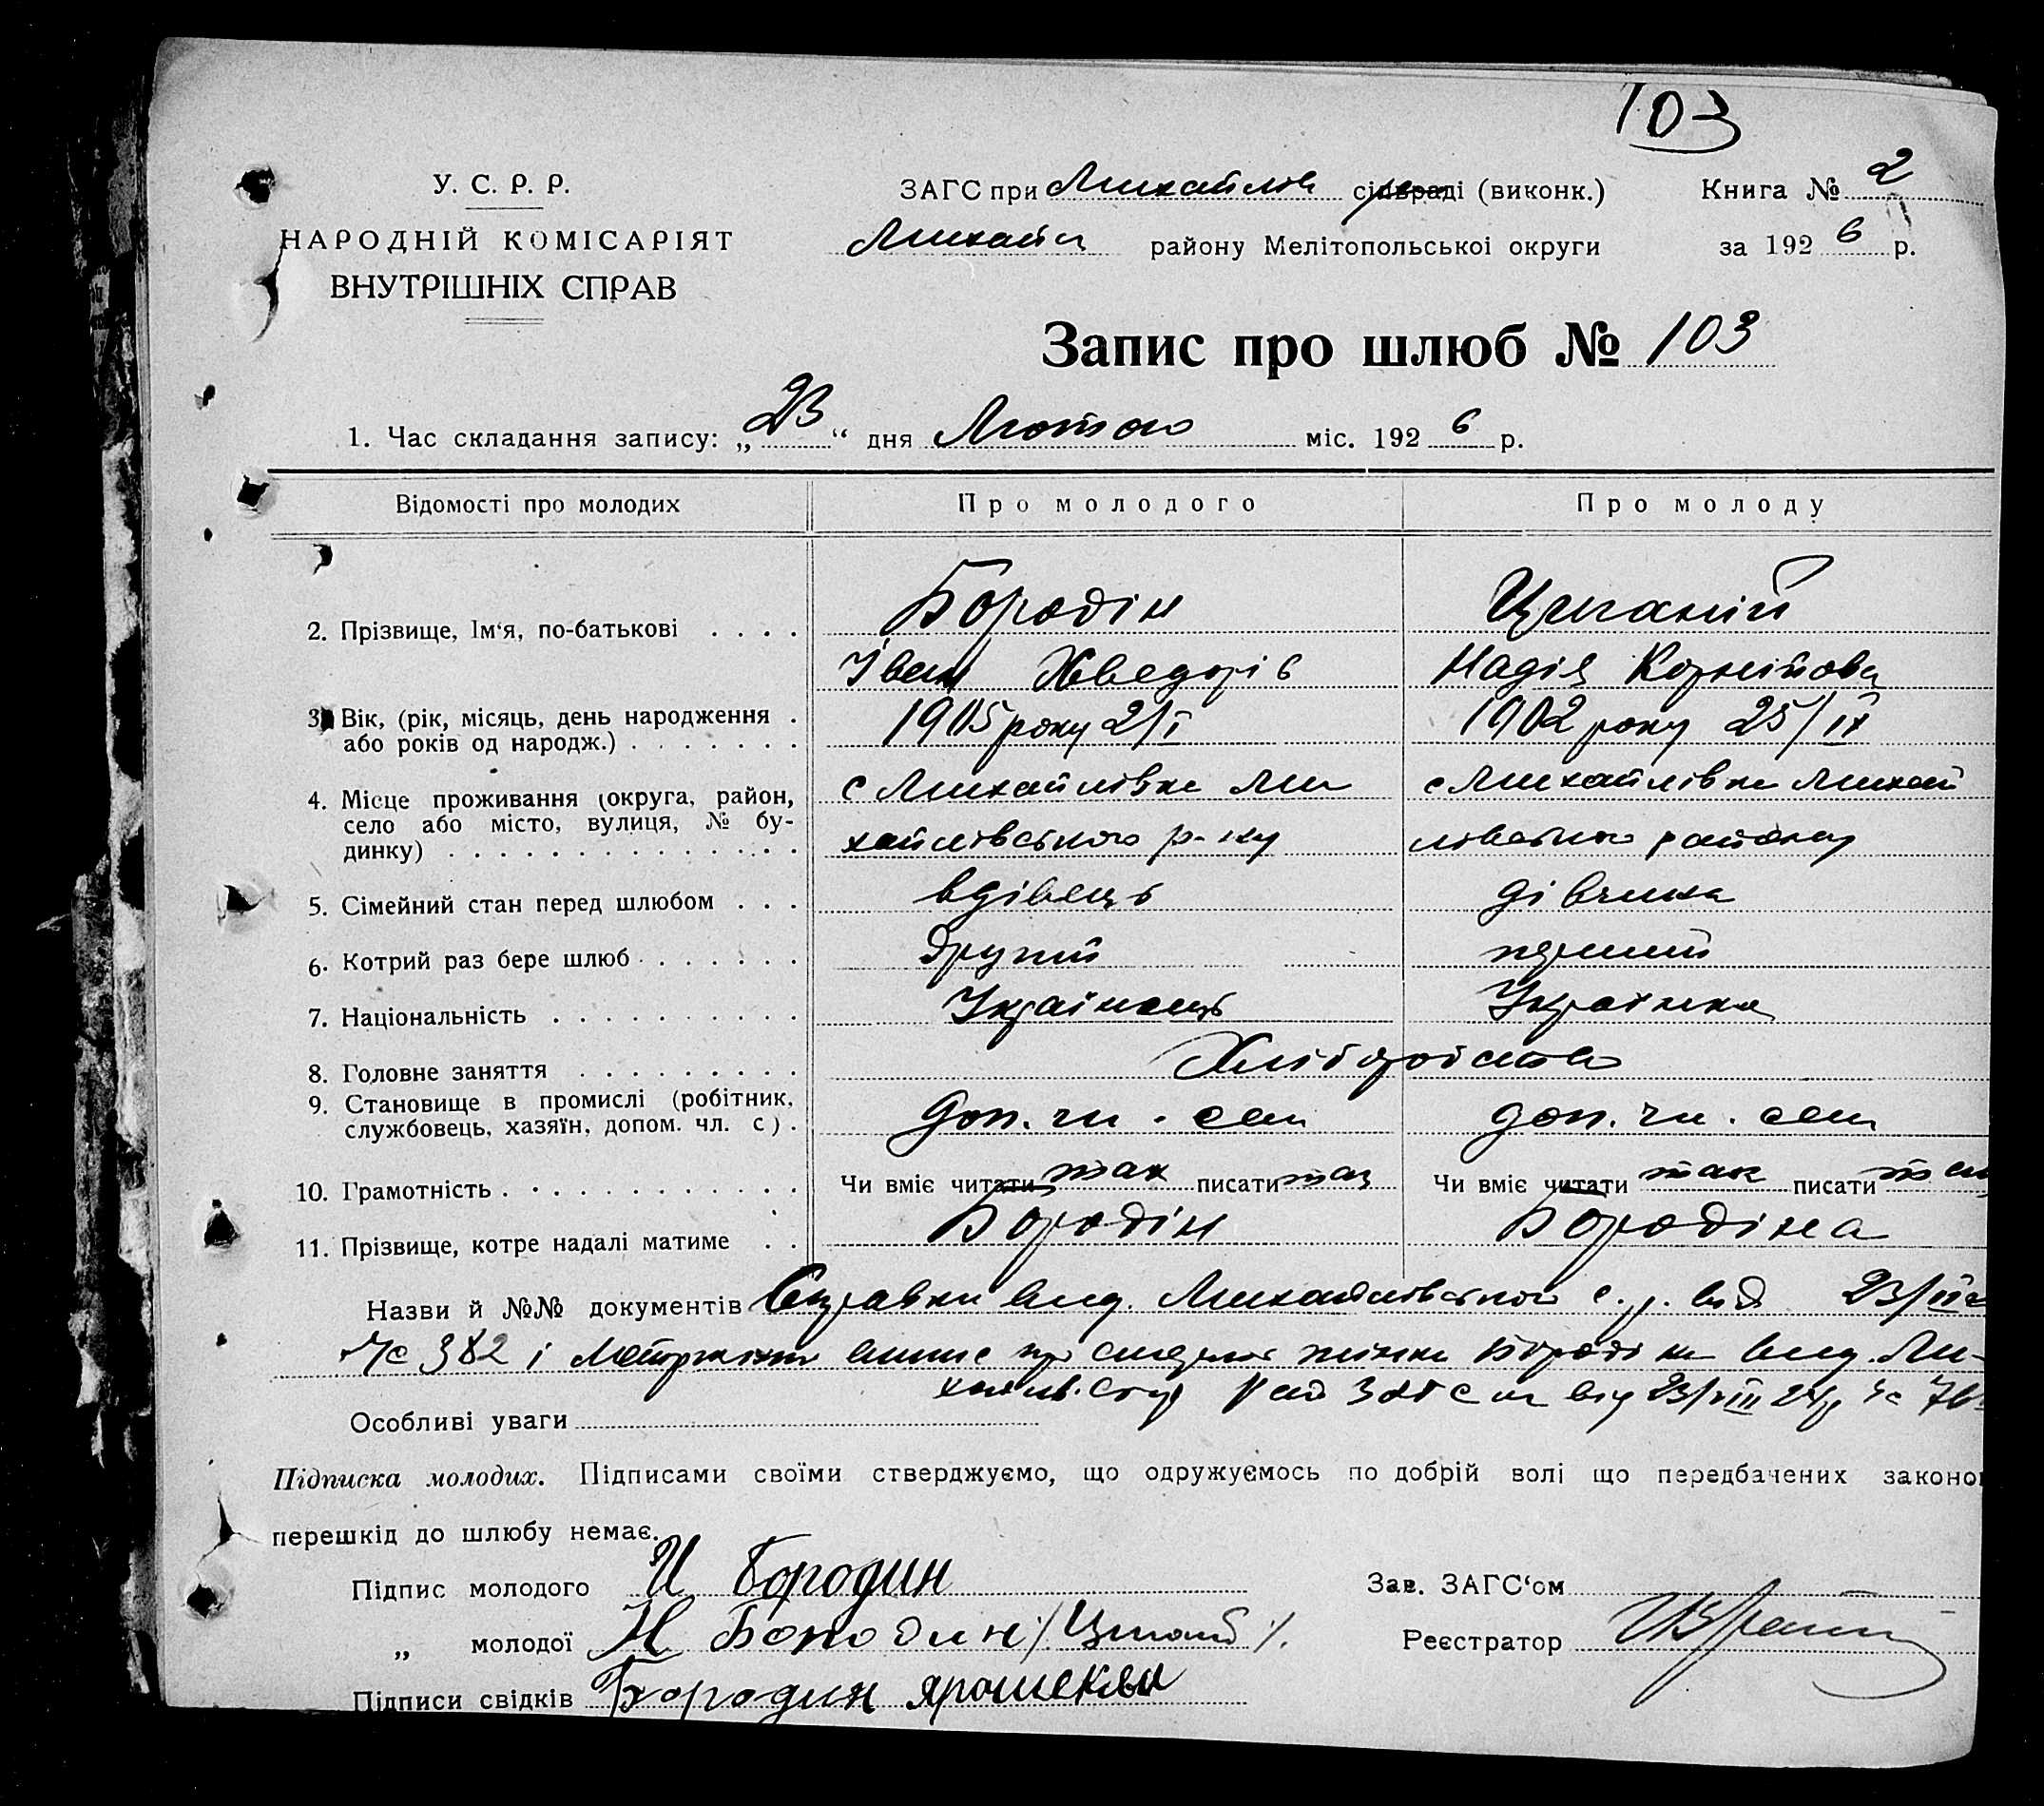 103
У. С. Р. Р.
НАРОДНІЙ КОМІСАРІЯТ
ВНУТРІШНІХ СПРАВ
ЗАГС при Михайлів сільраді (виконк.) Книга № 2
Михайл району Мелітопольської округи за 1926 р.
Запис про шлюб № 103
1. Час складання запису: „23“ дня Лютого міс. 1926 р.
Відомості про молодих Про молодого Про молоду
2. Прізвище, Ім‘я, по-батькові . . . . Бородін
Іван Хведорів
Надія Корнійова
3. Вік, (рік, місяць, день народження .
або років од народж.) . . . . . . . 1905 року 2/I 1902 року 25/IX
4. Місце проживання (округа, район,
село або місто, вулиця, № бу-
динку) . . . . . . . . . . . . . .
с Михайлівка Ми
хайлівського р-ну
с Михайлівка Михай
лівського району
5. Сімейний стан перед шлюбом . . . вдівець дівчина
6. Котрий раз бере шлюб . . . . . . . другий перший
7. Національність . . . . . . . . . . Українець Українка
8. Головне заняття . . . . . . . . . Хліборобство
9. Становище в промислі (робітник,
службовець, хазяїн, допом. чл. с) . доп. чл. сем доп. чл. сем
10. Грамотність . . . . . . . . . . . . Чи вміє читати так писати так Чи вміє читати так писати так
11. Прізвище, котре надалі матиме . . Бородін Бородіна
Назви й №№ документів Справки вид. Михайлівською с. р. від 23/II
№ 382 і
Особливі уваги
Підписка молодих. Підписами своїми стверджуємо, що одружуємось по добрій волі що передбачених законо
перешкід до шлюбу немає.
Підпис молодого И Бородин Зав. ЗАГС‘ом
„ молодої Н Бородин Реєстратор
Підписи свідків Бородин